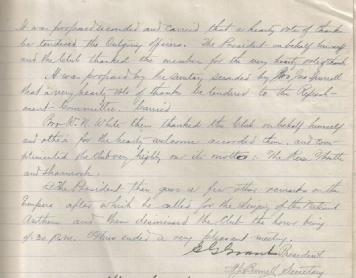 It was proposed seconded and carried that a hearty vote of thanks
be tendered the Outgoing officers. The President on behalf himself
and the Club thanked the members for the very hearty vote of thanks
It was proposed by the Secretary seconded by
that a very hearty vote of thanks be tendered to the Refresh-
ment Committee. Carried
W. N. White then thanked the Club on behalf himself
and others for the hearty welcome accorded them, and com-
plimented the Club very highly on its motto: The Rose Thistle
and Shamrock.
The President then gave a few other remarks on the
Empire after which he called for the Singing of the National
Anthem and then dismissed the Club the hour being
P.M. Thus ended a very pleasant meeting.
President
Secretary